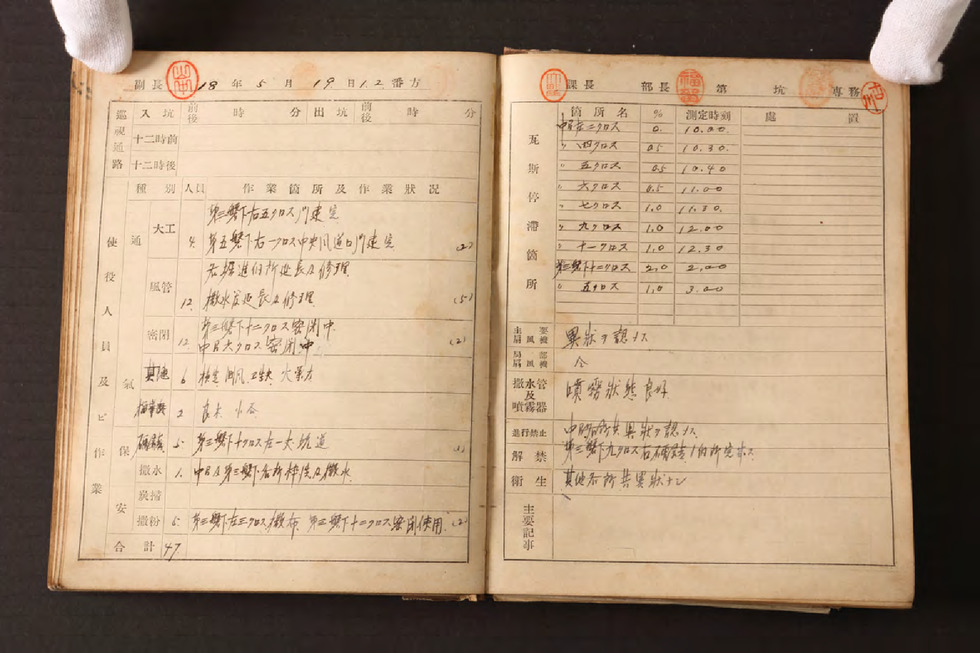 副長 18年5月19日1.2番方
巡視通路 入坑 前後 時 分 出坑 前後 時 分
十二時前
十二時後
使役人員及ビ作業
種別 人員 作業箇所及作業狀况
通氣
大工 第三盤下右五クロス門建完
4 第五盤下右一クロス中央風道口門建完 (2)
風管 各掘進個所延長及修理
12 撒水管延長及修理 (5)
密閉 第三盤下十二クロス密閉中
12 中目六クロス密閉中 (2)
其他 6 検定 測風 火薬方
2 良木 水谷
保安
5 第三盤下十クロス左一大坑道
撒水 1 中目及第三盤下各所枠洗及撒水
炭掃
撒粉 5 第三盤下左三クロス撒布 第三盤下十二クロス密閉使用 (2)
合計 47
課長 部長 第 坑 專務
瓦斯停滯箇所
箇所名 % 測定時刻 處置
中目左三クロス 0. 10.00
〃 四クロス 0.5 10.30.
〃 五クロス 0.5 10.40
〃 六クロス 0.5 11.00
〃 七クロス 1.0 11.30.
〃 九クロス 1.0 12.00
〃 十一クロス 1.0 12.30
第三盤下十二クロス 2.0 2.00
〃 五クロス 1.0 3.00
主要扇風機 異狀ヲ認メス
局部扇風機 仝
撒水管及噴霧器 噴霧狀態良好
進行禁止 異狀ヲ認メス
解禁 第三盤下九クロス右
衛生 其他各所共異狀ナシ
主要記事